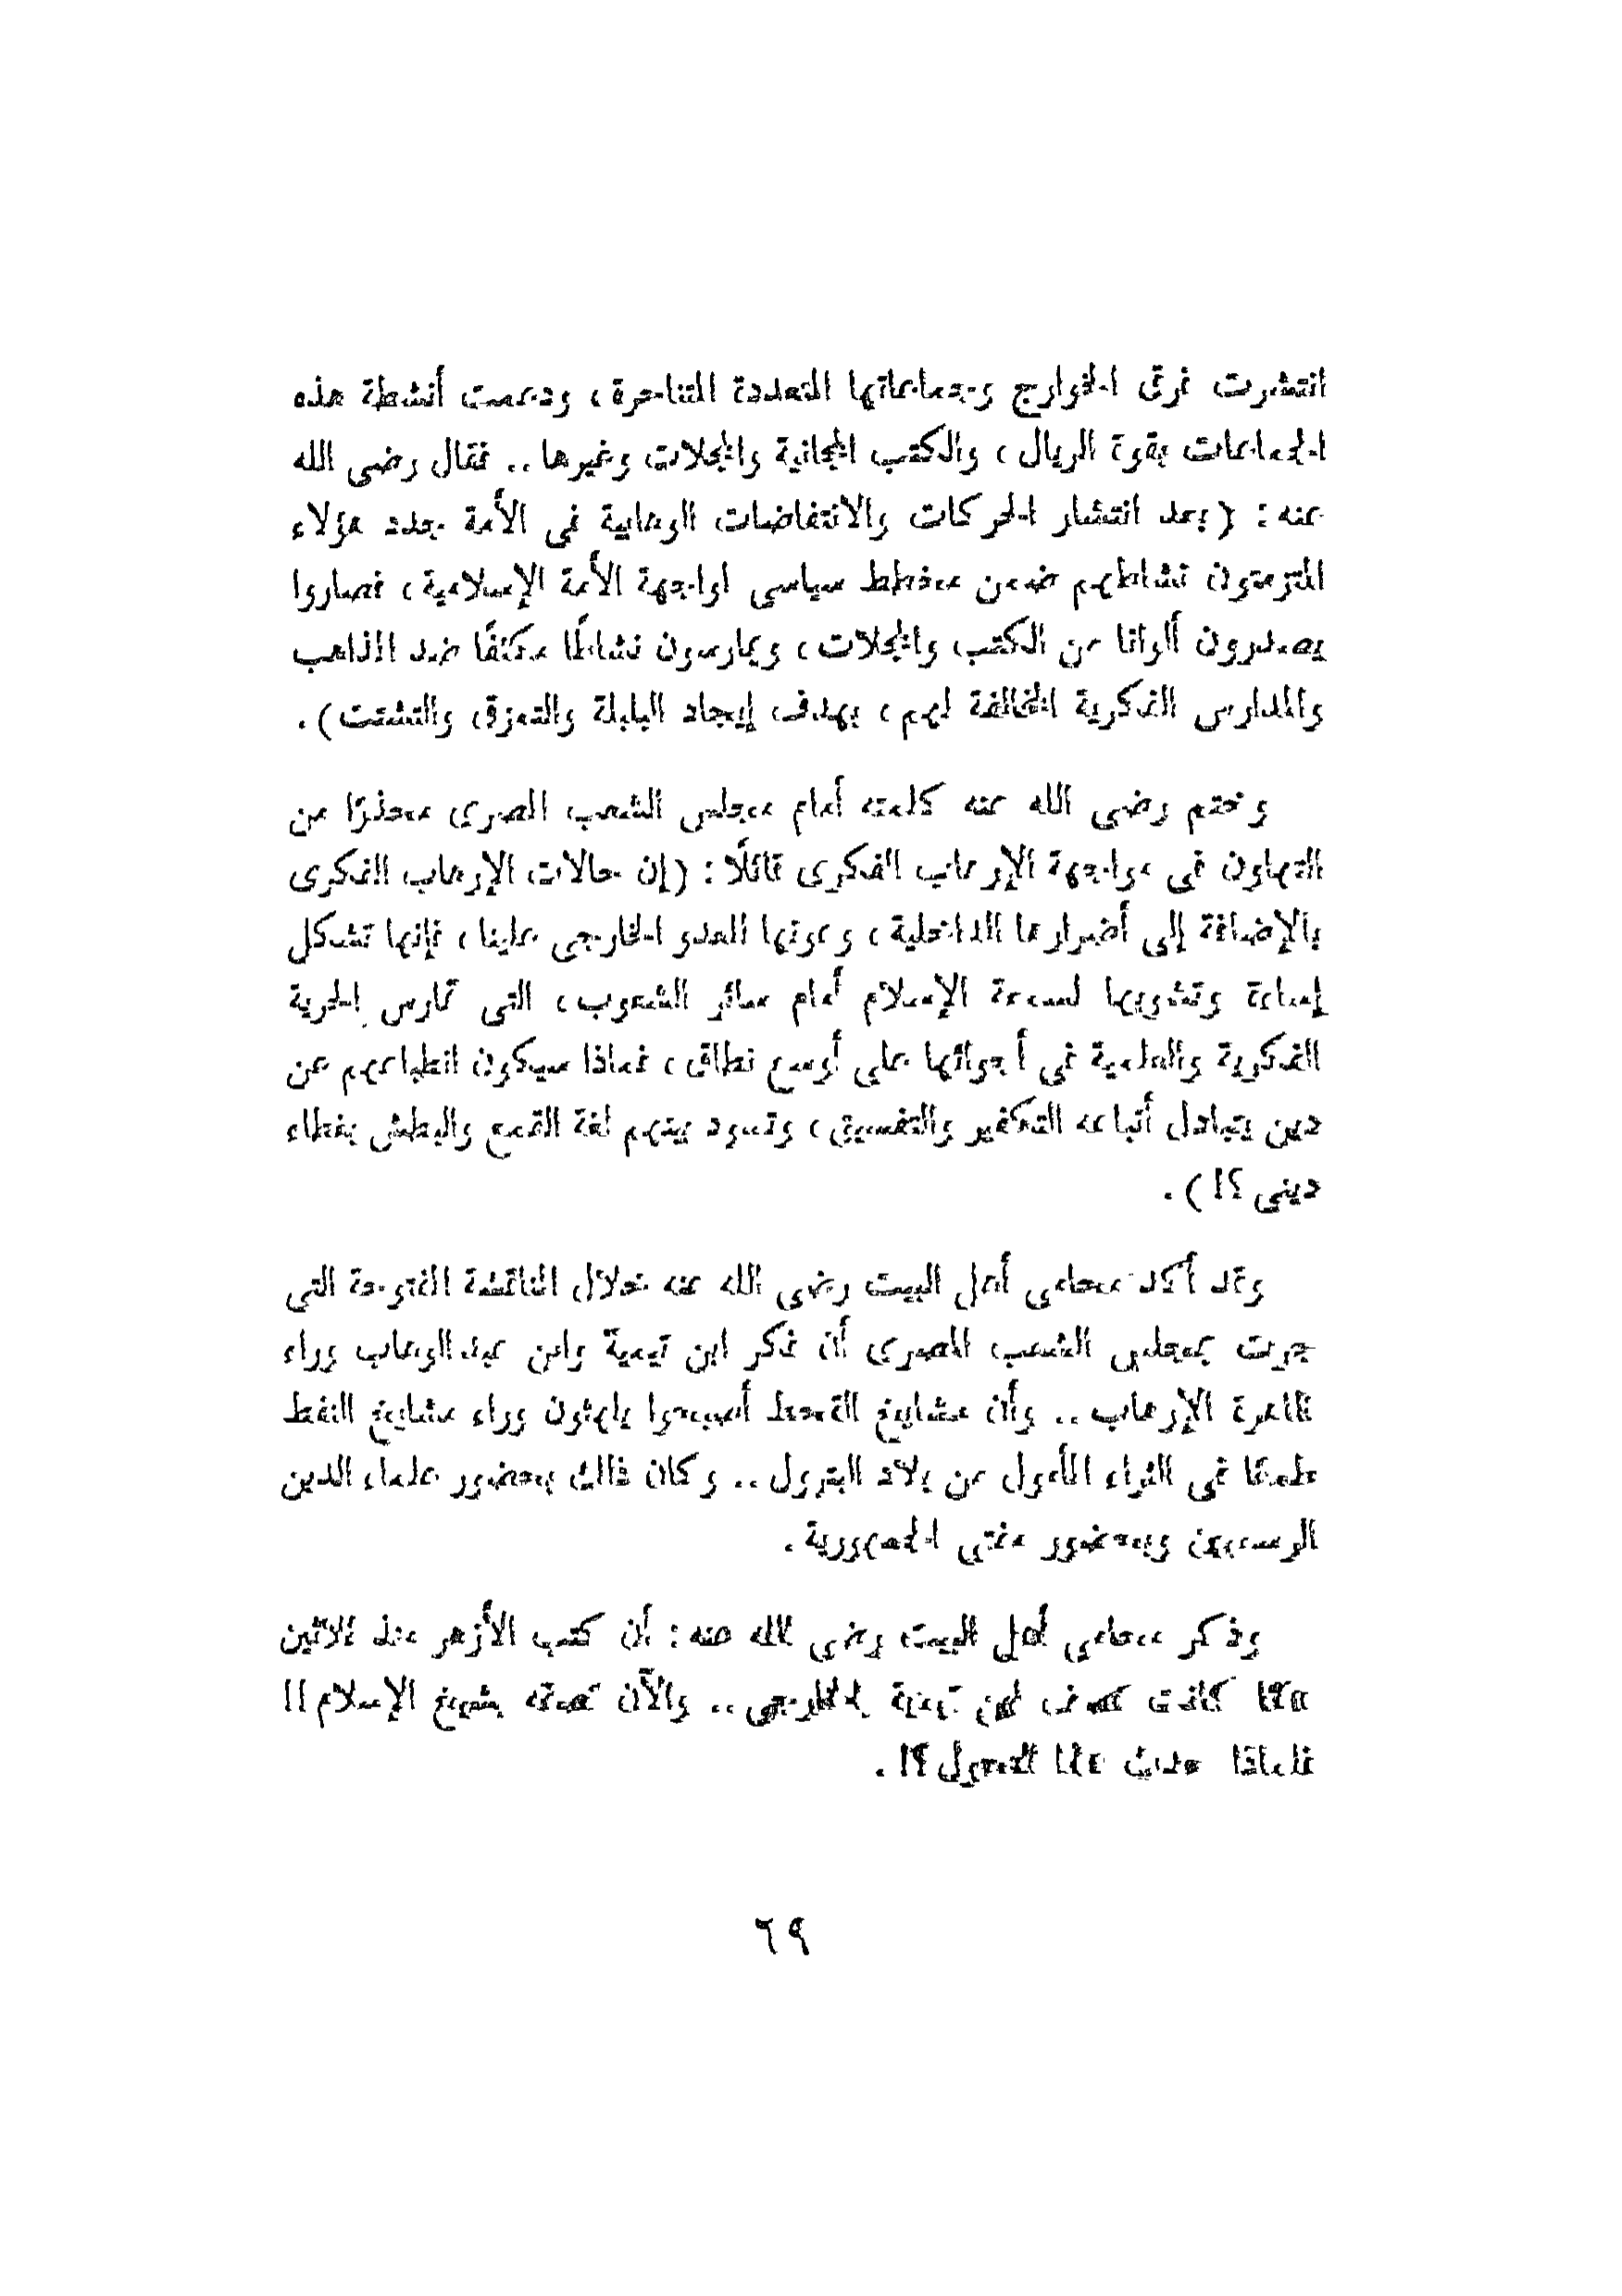 انتشرت فرق الخوارج وجماعاتها المتعددة المتناحرة ، ودعمت أنشطة هذه
الجماعات بقوة الريال ، والكتب المجانية والمجلات وغيرها .. فقال رضى الله
عنه : ( بعد انتشار الحركات والانتفاضات الوهابية فى الأمة جدد هؤلاء
المتزمتون نشاطهم ضمن مخطط سياسى لمواجهة الأمة الإسلامية ، فصاروا
يصدرون ألوانا من الكتب والمجلات ، ويمارسون نشاطًا مكثفًا ضد المذاهب
والمدارس الفكرية المخالفة لهم ، بهدف إيجاد البلبلة والتمزق والتشتت ) .
وختم رضى الله عنه كلمته أمام مجلس الشعب المصرى محذرًا من
التهاون فى مواجهة الإرهاب الفكرى قائلًا : ( إن حالات الإرهاب الفكرى
بالإضافة إلى أضرارها الداخلية ، وعونها للعدو الخارجى علينا ، فإنها تشكل
إساءة وتشويها لسمعة الإسلام أمام سائر الشعوب ، التى تمارس الحرية
الفكرية والعلمية فى أجوائها على أوسع نطاق ، فماذا سيكون انطباعهم عن
دين يتبادل أتباعه التكفير والتفسيق ، وتسود بينهم لغة القمع والبطش بغطاء
دينى ؟! ) .
وقد أكد محامى أهل البيت رضى الله عنه خلال المناقشة المفتوحة التى
جرت بمجلس الشعب المصرى أن فكر ابن تيمية وابن عبد الوهاب وراء
ظاهرة الإرهاب .. وأن مشايخ القحط أصبحوا يلهثون وراء مشايخ النفط
طمعًا فى الثراء المأمول من بلاد البترول .. وكان ذلك بحضور علماء الدين
الرسميين وبحضور مفتى الجمهورية .
وذكر محامى أهل البيت رضى الله عنه : أن كتب الأزهر منذ ثلاثين
عامًا كانت تصف ابن تيمية بالخارجى .. والآن تصفه بشيخ الإسلام !!
فلماذا حدث هذا التحول ؟! .
٦٩